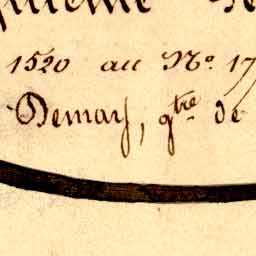 1520 au Nº 17
Demay, gtre de